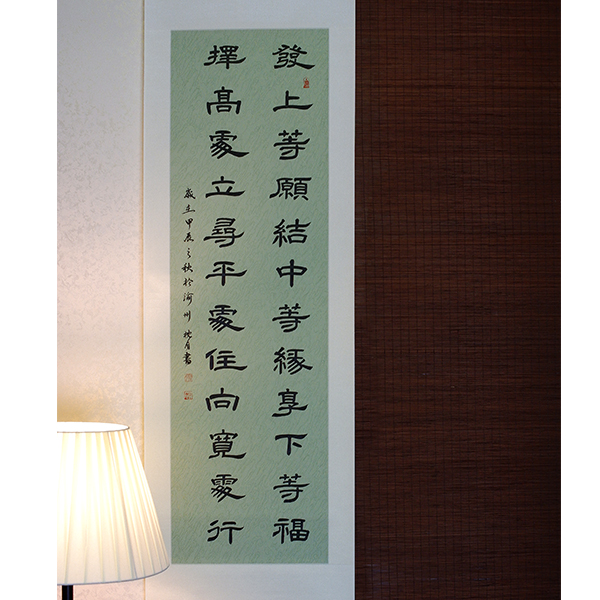 發上等願結中等緣享下等福
擇髙處立尋平處住向寬處行
歲在甲辰之秋於渝州